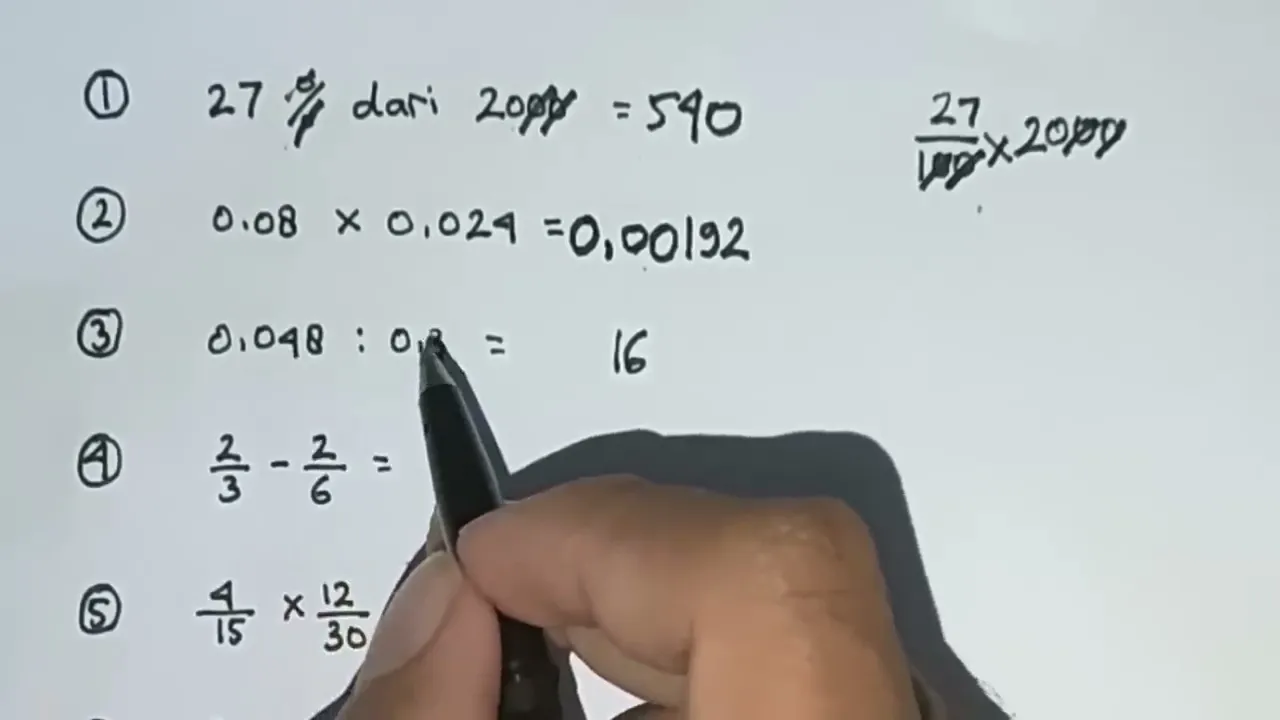 ① 27 % dari 2000 = 540
27
100 × 2000
② 0.08 × 0.024 = 0.00192
③ 0.048 : 0.3 = 16
④ 2/3 - 2/6 =
⑤ 4/15 × 12/30